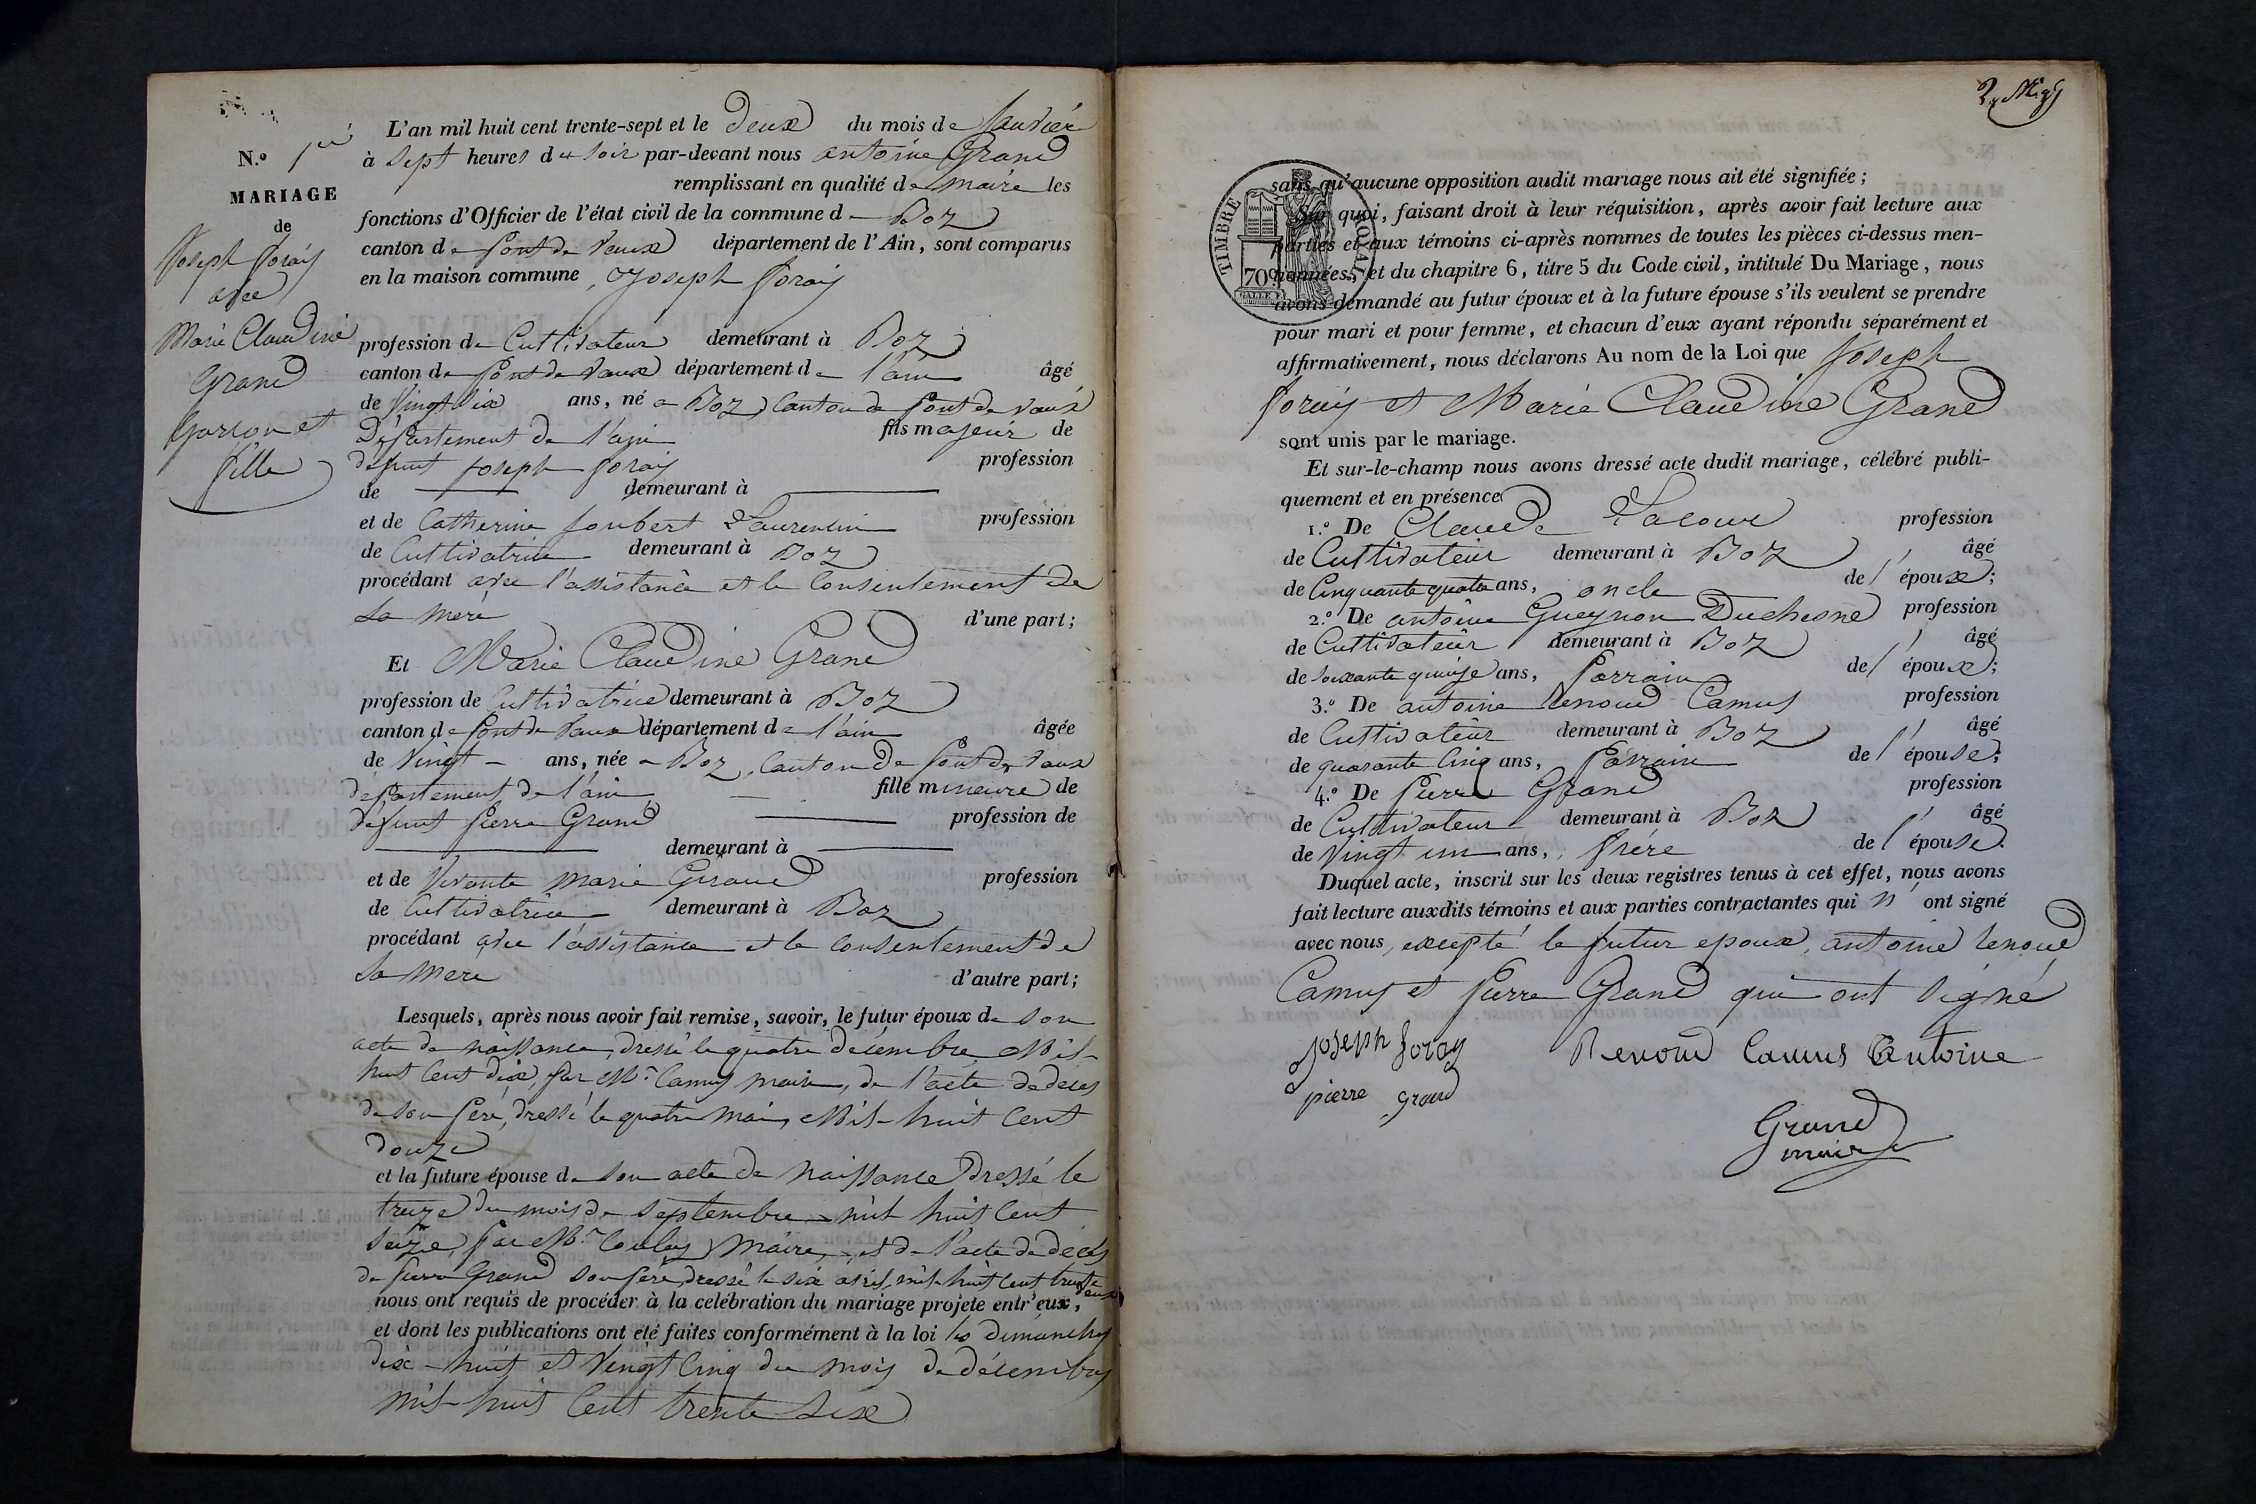 N.º 1er
MARIAGE
de
Joseph Joray
avec
Marie Claudine
Grand
Garçon et
fille
L'an mil huit cent trente-sept et le deux du mois de Janvier
à Sept heures du Soir par-devant nous antoine Grand
remplissant en qualité de Maire les
fonctions d'Officier de l'état civil de la commune de Boz
canton de pont de Vaux département de l'Ain, sont comparus
en la maison commune, Joseph Joray
profession de Cultivateur demeurant à Boz
canton de pont de Vaux département de l'ain âgé
de Vingt Six ans, né a Boz, Canton de pont de Vaux
Département de l'ain fils majeur de
défunt Joseph Joray profession
de demeurant à
et de Catherine Joubert Laurentin profession
de Cultivatrice demeurant à Boz
procédant avec l'assistance et le Consentement de
Sa mere d'une part;
Et Marie Claudine Grand
profession de Cultivatrice demeurant à Boz
canton de pont de Vaux département de l'ain âgée
de Vingt ans, née a Boz, Canton de pont de Vaux
département de l'ain fille mineure de
défunt pierre Grand profession de
demeurant à
et de Vivante Marie Giraud profession
de Cultivatrice demeurant à Boz
procédant avec l'assistance et le Consentement de
Sa Mere d'autre part;
Lesquels, après nous avoir fait remise, savoir, le futur époux de Son
acte de naissance, dressé le quatre décembre Mil-
huit Cent dix, par Mr. Camus maire, de l'acte de décès
de Son père, dressé le quatre mai Mil-huit Cent
douze
et la future épouse de Son acte de naissance dressé le
treize du mois de Septembre mil huit Cent
Seize, par Mr. Maire, et de l'acte de décès
de pierre Grand Son père, dressé le Six avril mil huit Cent trente
deux
nous ont requis de procéder à la celébration du mariage projeté entr'eux,
et dont les publications ont été faites conformément à la loi les dimanches
dix-huit et Vingt Cinq du mois de décembre
mil-huit Cent trente Six
TIMBRE ROYAL
70 c.
sans qu'aucune opposition audit mariage nous ait été signifiée;
Sur quoi, faisant droit à leur réquisition, après avoir fait lecture aux
parties et aux témoins ci-après nommes de toutes les pièces ci-dessus men-
tionnées, et du chapitre 6, titre 5 du Code civil, intitulé Du Mariage, nous
avons demandé au futur époux et à la future épouse s'ils veulent se prendre
pour mari et pour femme, et chacun d'eux ayant répondu séparément et
affirmativement, nous déclarons Au nom de la Loi que Joseph
Joray et Marie Claudine Grand
sont unis par le mariage.
Et sur-le-champ nous avons dressé acte dudit mariage, célébré publi-
quement et en présence
1.º De Claude Lacour profession
de Cultivateur demeurant à Boz âgé
de Cinquante quatre ans, oncle de l'époux;
2.º De antoine Gueynon Duchesne profession
de Cultivateur demeurant à Boz âgé
de Soixante quinze ans, Parrain de l'époux;
3.º De antoine Renoud Camus profession
de Cultivateur demeurant à Boz âgé
de quarante Cinq ans, Parrain de l'épouse;
4.º De Pierre Grand profession
de Cultivateur demeurant à Boz âgé
de Vingt un ans, frére de l'épouse.
Duquel acte, inscrit sur les deux registres tenus à cet effet, nous avons
fait lecture auxdits témoins et aux parties contractantes qui n'ont signé
avec nous, excepté le futur epoux, antoine Renoud
Camus et Pierre Grand qui ont Signé
Joseph Joray Renoud Camus Antoine
pierre grand
Grand
maire